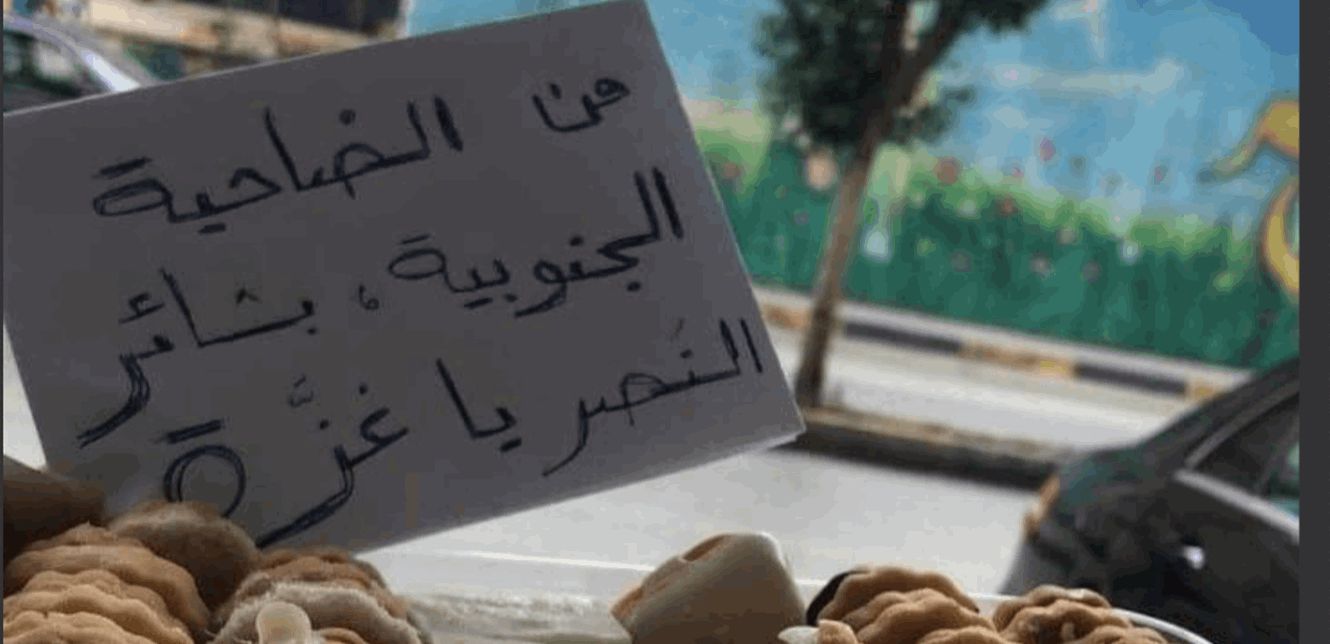 من الضاحية
الجنوبية، بشائر
النَصر يا غزَّة